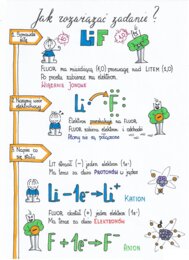 Jak rozwiązać zadanie?
LiF
FLUOR ma niższą (4,0) przewagę nad LITEM (1,0)
Po prostu zabierze mu elektron.
WIĄZANIE JONOWE
Li F:
Elektron przechodzi na FLUOR.
FLUOR zabiera elektron i odchodzi
Atomy nie są połączone
Napisz co
się stało
Lit oddał (-) jeden elektron (1e-)
Ma teraz za dużo PROTONÓW w jądrze
Li - 1e- → Li+
KATION
FLUOR dostał (+) jeden elektron (1e-)
Ma teraz za dużo ELEKTRONÓW
F + 1e- → F-
ANION